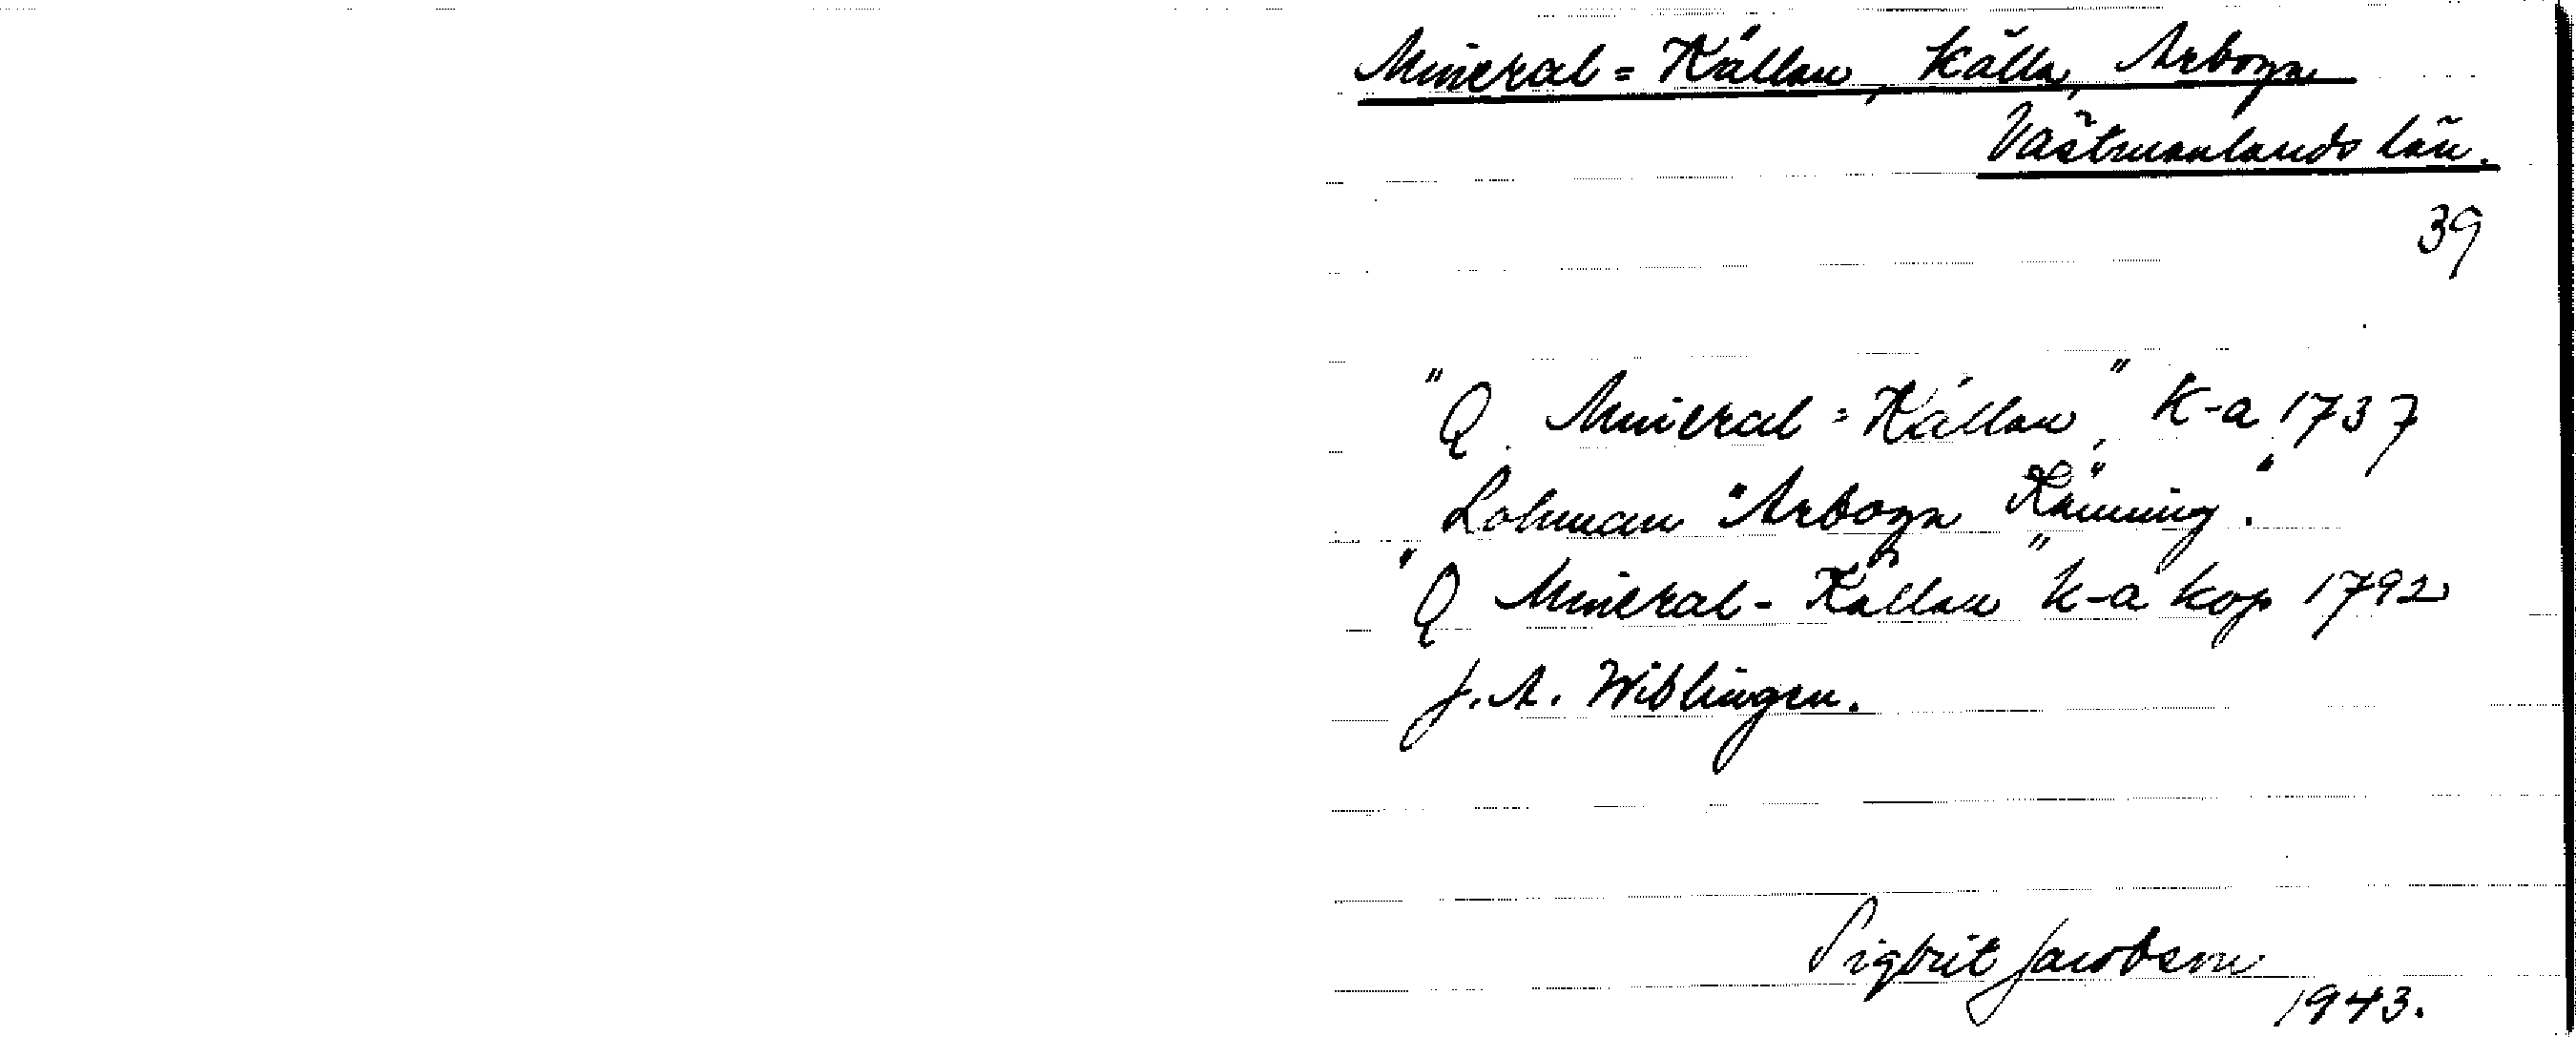 Mineral=Källan, källa, Arboga
Västmanlands län.
39
"Q Mineral=Källan", K-a 1737
Lohman "Arboga Känning".
"Q Mineral-Källan" k-a kop 1792
J. A. Wiblingen.
Sigbrit Jacobson
1943.